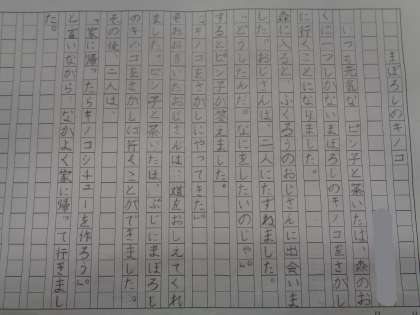 まぼろしのキノコ
いつも元気な ピン子と葉いたは、森のお
くに一つしかないまぼろしのキノコをさがし
に行くことになりました。
森に入ると、ふくろうのおじさんに出会いま
した。おじさんは、二人にたずねました。
「どうしたんだ。なにをしたいのじゃ。」
するとピン子が答えました。
「キノコをさがしにやってきた。」
それをきいたおじさんは、道をおしえてくれ
ました。ピン子と葉いたは、ぶじにまぼろし
のキノコをさがしに行くことができました。
その後、二人は、
「家に帰ったらキノコシチューを作ろう。」
と言いながら なかよく家に帰って行きまし
た。